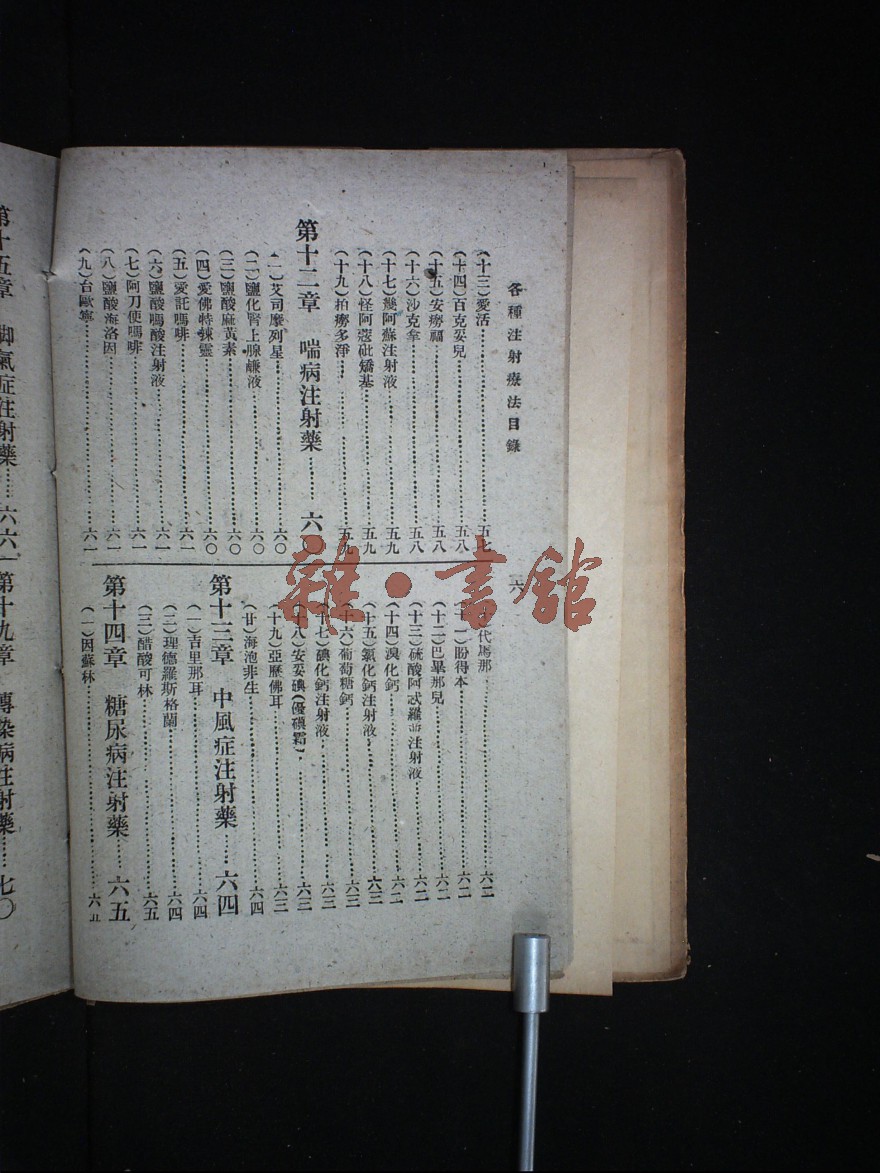 各種注射療法目錄
六
(十三)愛活……五七
(十四)百克妥兒……五八
(十五)安癆福……五八
(十六)沙克拿……五八
(十七)幾阿蘇注射液……五九
(十八)怪阿蔻砒矯基……五九
(十九)柏癆多淨……五九
第十二章 喘病注射藥……六〇
(一)艾司摩列星……六〇
(二)鹽化腎上腺鹻液……六〇
(三)鹽酸麻黃素……六〇
(四)愛佛特錬靈……六〇
(五)愛託嗎啡……六一
(六)鹽酸嗎酸注射液……六一
(七)阿刀便嗎啡……六一
(八)鹽酸海洛因……六一
(九)台歐寧……六一
代馬那……六二
(十一)盼得本……六二
(十二)巴畢那兒……六二
(十三)硫酸阿忒羅注射液……六二
(十四)溴化鈣……六二
(十五)氯化鈣注射液……六三
(十六)葡萄糖鈣……六三
(十七)碘化鈣注射液……六三
(十八)安妥碘(優碘霜)……六三
(十九)亞歷佛耳……六三
(廿)海泡非生……六四
第十三章 中風症注射藥……六四
(一)吉里那耳……六四
(二)理德羅斯格蘭……六四
(三)醋酸可林……六五
第十四章 糖尿病注射藥……六五
(一)因蘇林……六五
第十五章 脚氣症注射藥……六六
第十九章 傳染病注射藥……七〇
雜·書館